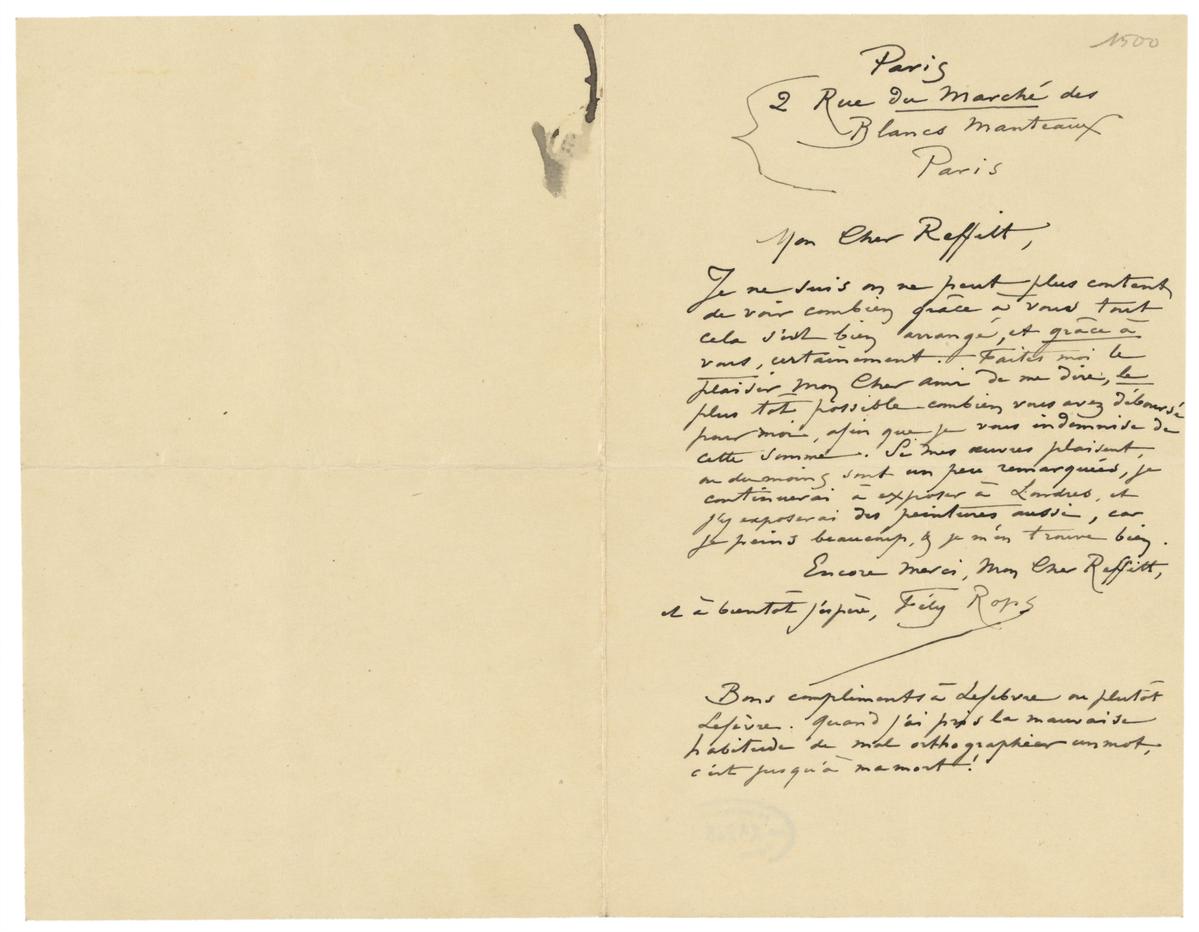 1500
Paris
2 Rue du Marché des
Blancs Manteaux
Paris
Mon Cher Reffitt,
Je ne suis on ne peut plus content,
de voir combien grâce à vous tout
cela s'est bien arrangé, et grâce à
vous, certainement. Faites moi le
plaisir Mon Cher ami de me dire, le
plus tôt possible combien vous avez déboursé
pour moi, afin que je vous indemnise de
cette somme. Si mes œuvres plaisent,
ou du moins sont un peu remarquées, je
continuerai à exposer à Londres, et
j'y exposerai des peintures aussi, car
je peins beaucoup, & je m'en trouve bien.
Encore Merci, Mon Cher Reffitt,
et à bientôt j'espère, Fély Rops
Bons compliments à Lefebvre ou plutôt
Lefèvre. Quand j'ai pris la mauvaise
habitude de mal orthographier un mot,
c'est jusqu'à ma mort!